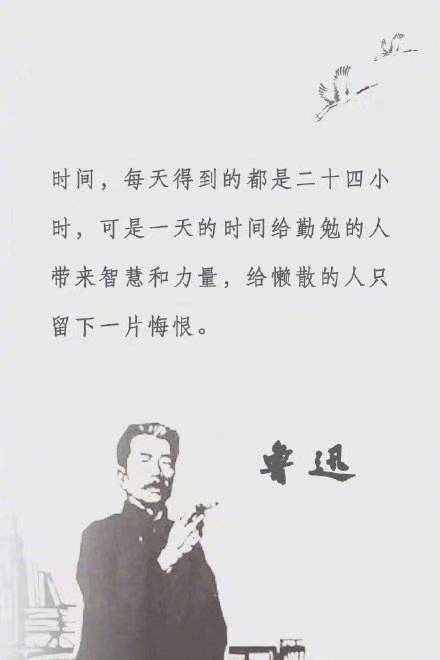 时间，每天得到的都是二十四小
时，可是一天的时间给勤勉的人
带来智慧和力量，给懒散的人只
留下一片悔恨。
鲁迅